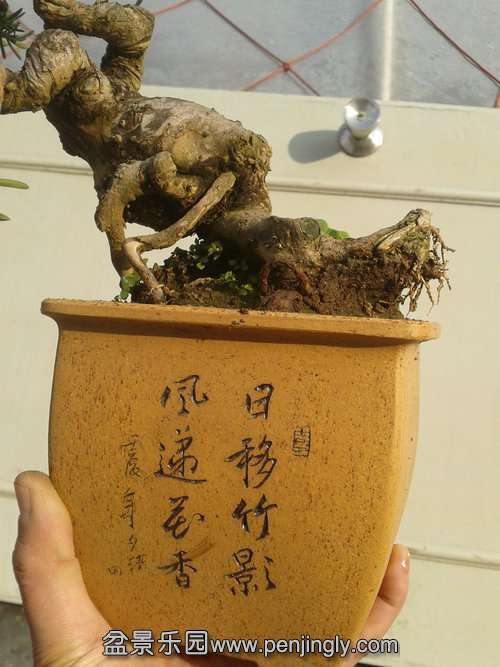 日移竹影
风递花香
盆景乐园www.penjingly.com